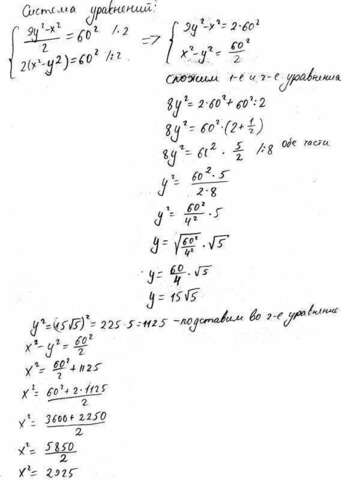 Система уравнений:
{ (9y²-x²)/2 = 60² /·2 => { 9y²-x² = 2·60²
{ 2(x²-y²) = 60² /:2 { x²-y² = 60²/2
сложим 1-е и 2-е уравнения
8y² = 2·60² + 60²:2
8y² = 60²·(2+1/2)
8y² = 60²·5/2 /:8 обе части
y² = (60²·5)/(2·8)
y² = 60²/4² · 5
y = √(60²/4²) · √5
y = 60/4 · √5
y = 15√5
y² = (15√5)² = 225·5 = 1125 - подставим во 2-е уравнение
x² - y² = 60²/2
x² = 60²/2 + 1125
x² = (60² + 2·1125)/2
x² = (3600 + 2250)/2
x² = 5850/2
x² = 2925